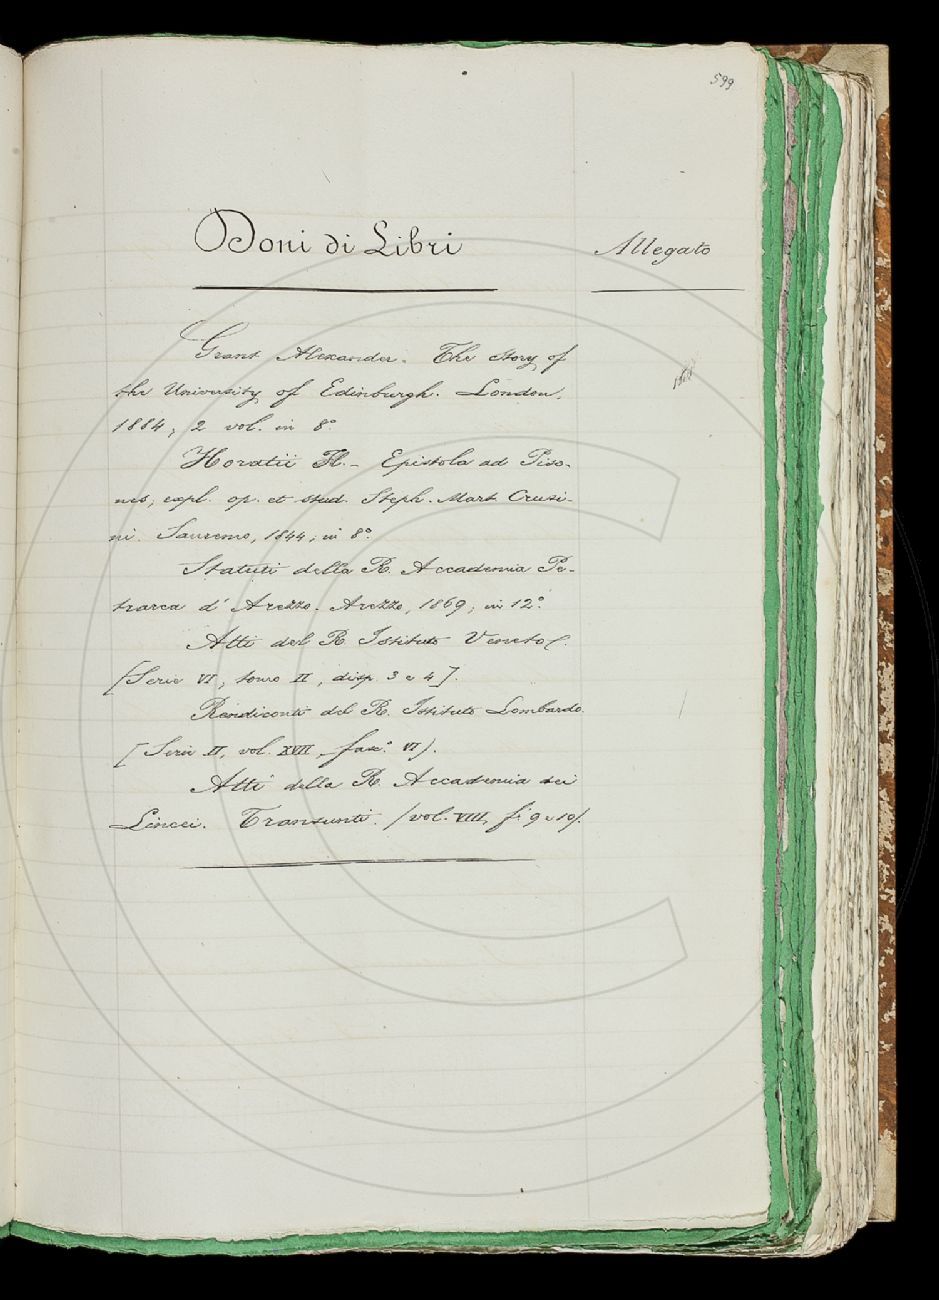 599
Doni di Libri
Allegato
Grant Alexander. The story of
the University of Edinburgh. London,
1884; 2 vol. in 8°.
Horatii Fl. - Epistola ad Piso-
nes, expl. op. et stud. Steph. Mart. Crusi-
ni. Sanremo, 1844; in 8°.
Statuti della R. Accademia Pe-
trarca d'Arezzo. Arezzo, 1869; in 12°.
Atti del R. Istituto Veneto
[Serie VI, tomo II, disp. 3 e 4].
Rendiconti del R. Istituto Lombardo.
[Serie II, vol. XVII, fasc. VI].
Atti della R. Accademia dei
Lincei. Transunti. (vol. VIII, f. 9 e 10).